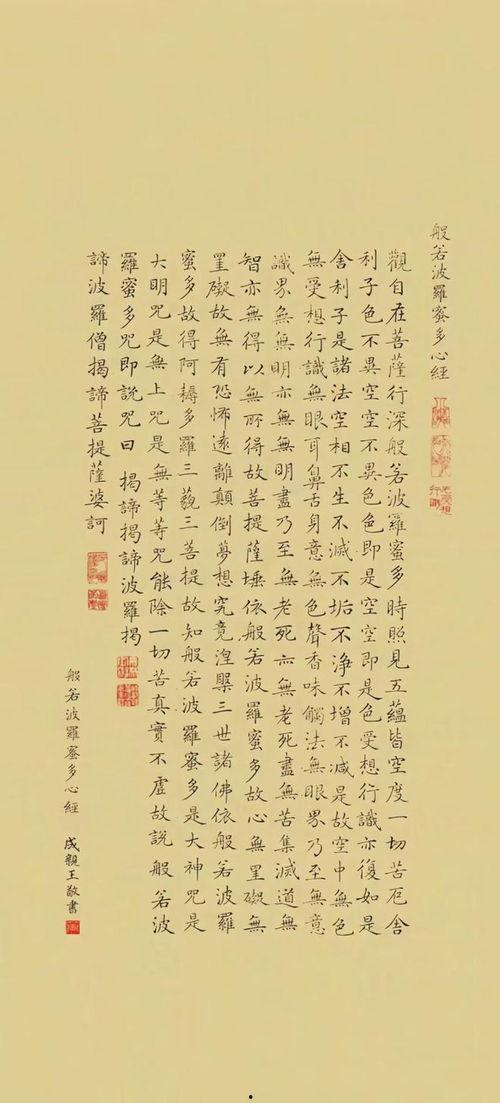 般若波羅蜜多心經
觀自在菩薩行深般若波羅蜜多時照見五蘊皆空度一切苦厄舍
利子色不異空空不異色色即是空空即是色受想行識亦復如是
舍利子是諸法空相不生不滅不垢不淨不增不减是故空中無色
無受想行識無眼耳鼻舌身意無色聲香味觸法無眼界乃至無意
識界無無明亦無無明盡乃至無老死亦無老死盡無苦集滅道無
智亦無得以無所得故菩提薩埵依般若波羅蜜多故心無罣礙無
罣礙故無有恐怖遠離顛倒夢想究竟涅槃三世諸佛依般若波羅
蜜多故得阿耨多羅三藐三菩提故知般若波羅蜜多是大神咒是
大明咒是無上咒是無等等咒能除一切苦真實不虛故說般若波
羅蜜多咒即說咒曰 揭諦揭諦波羅揭
諦波羅僧揭諦菩提薩婆訶
般若波羅蜜多心經 成親王敬書